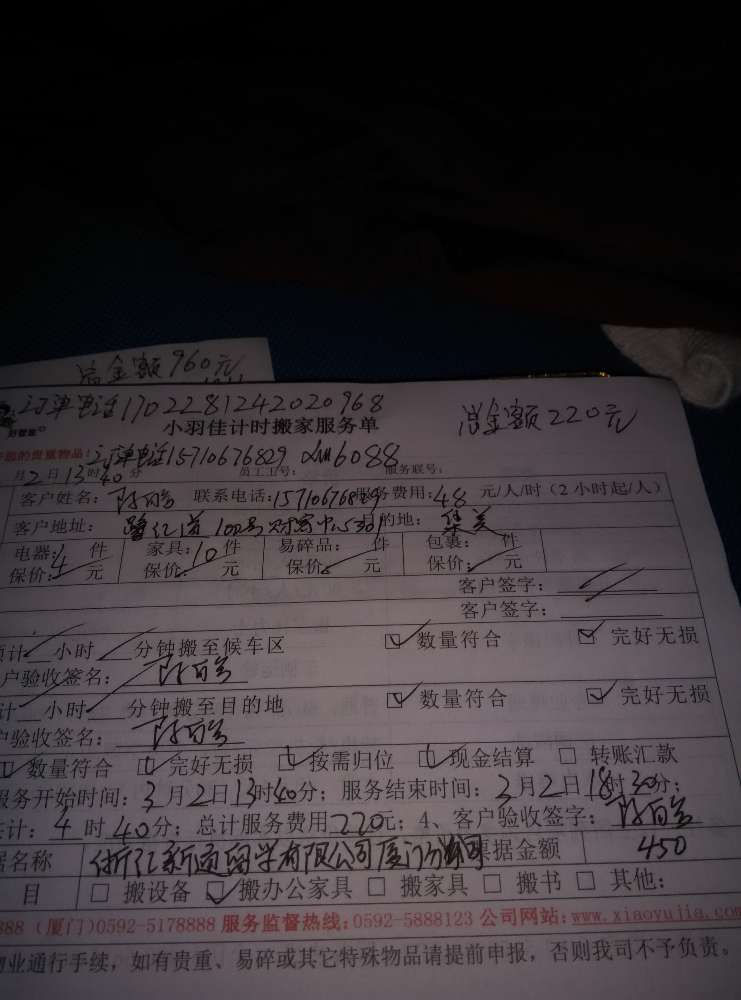 总金额960元
订单电话1702281242020968
总金额220元
小羽佳计时搬家服务单
的贵重物品:订单电话15710676829 6088
月2日13时40分 员工工号: 服务联号:
客户姓名: 联系电话:15710676829服务费用:48 元/人/时(2小时起/人)
客户地址: 鹭江道100号财富中心 目的地: 集美
电器:4 件 家具:10件 易碎品: 件 包裹: 件
保价: 元 保价: 元 保价: 元 保价: 元
客户签字:
客户签字:
计 小时 分钟搬至候车区 数量符合 完好无损
户验收签名:
计 小时 分钟搬至目的地 数量符合 完好无损
户验收签名:
数量符合 完好无损 按需归位 现金结算 转账汇款
服务开始时间:3月2日13时40分;服务结束时间:3月2日18时30分;
计:4时40分;总计服务费用220元;4、客户验收签字:
名称 浙江新通留学有限公司厦门分公司 票据金额 450
目 搬设备 搬办公家具 搬家具 搬书 其他:
888(厦门)0592-5178888 服务监督热线:0592-5888123 公司网站:www.xiaoyujia.com
物业通行手续,如有贵重、易碎或其它特殊物品请提前申报,否则我司不予负责。